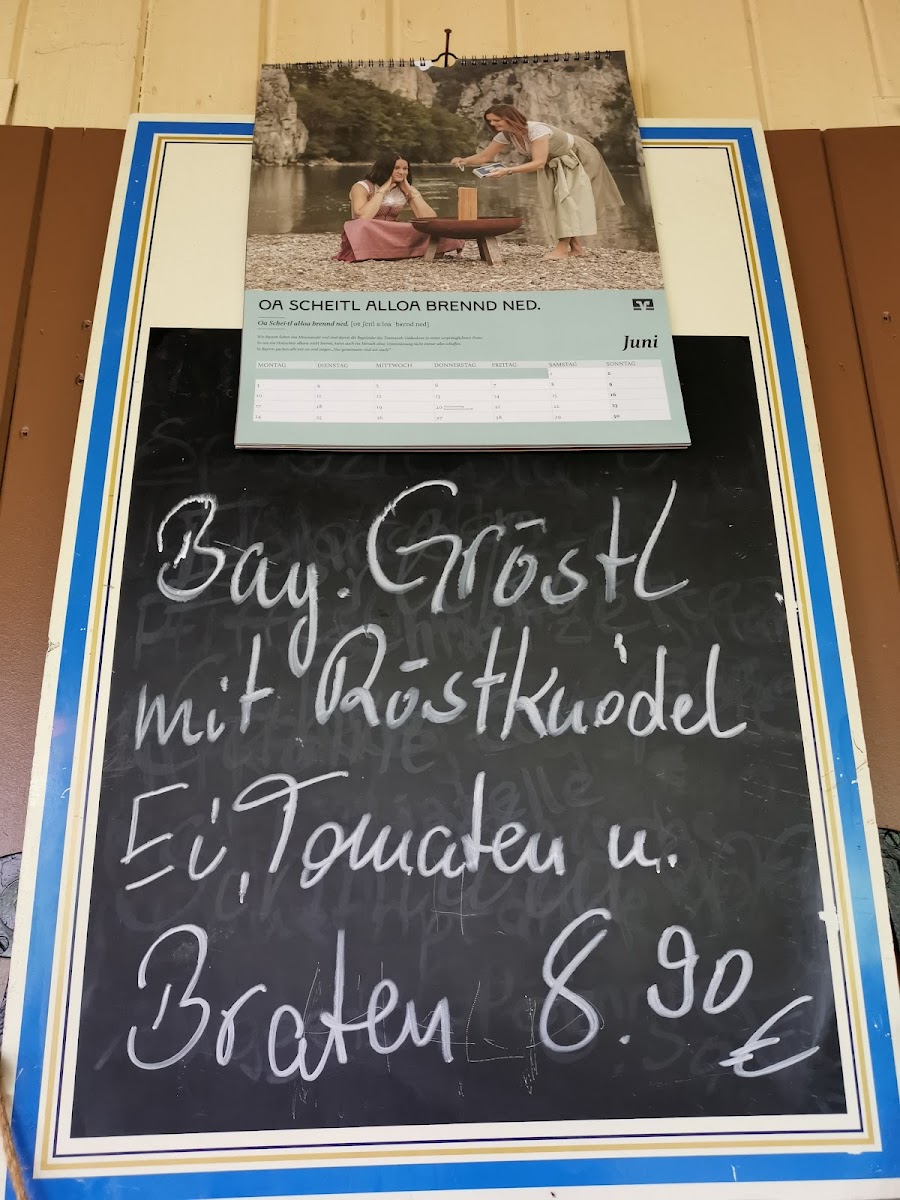 OA SCHEITL ALLOA BRENND NED.
Oa Schei·tl alloa brennd ned.
Juni
MONTAG DIENSTAG MITTWOCH DONNERSTAG FREITAG SAMSTAG SONNTAG
1 2
3 4 5 6 7 8 9
10 11 12 13 14 15 16
17 18 19 20 21 22 23
24 25 26 27 28 29 30
Bay. Gröstl
mit Röstknödel
Ei, Tomaten u.
Braten 8.90
€